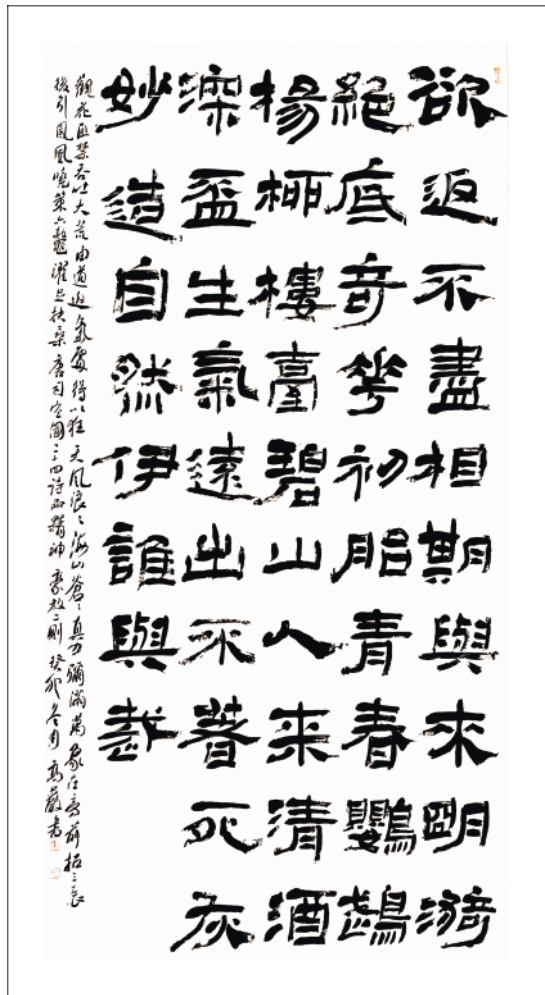 欲返不盡相期與来明漪
絕底奇花初胎青春鸚鵡
楊柳樓臺碧山人来清酒
深盃生氣遠出不著死灰
妙造自然伊誰與裁
觀花匪禁吞吐大荒由道返氣處得以狂天風浪〻海山蒼〻真力彌滿萬象在旁前招三辰
後引鳳凰曉策六鼇濯足扶桑唐司空圖二十四詩品精神豪放二則癸卯冬月高巖書